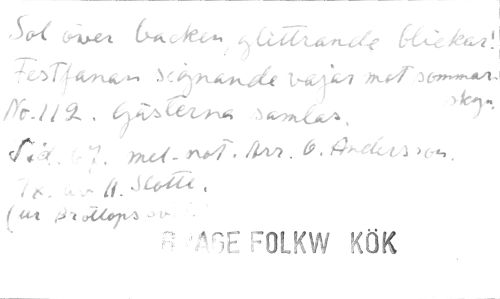 Sol över backen, glittrande blickar!
Festfanan signande vajar mot sommar-
skyn.
No. 112. Gästerna samlas.
Sid. 67. mel-not. Arr. O. Andersson.
Tx. av A. Slotte.
(ur Bröllops
FOLKW KÖK